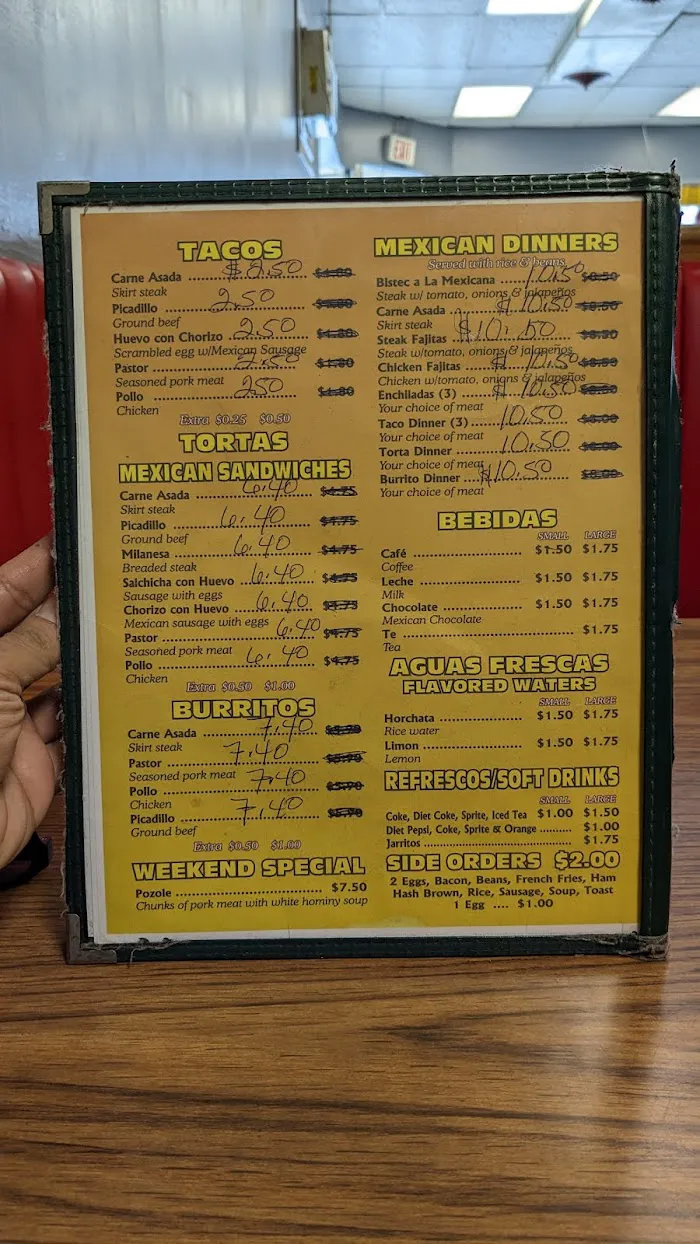 EXIT
TACOS
Carne Asada ........ $2.50 $1.80
Skirt steak
Picadillo ........ 2.50 $1.80
Ground beef
Huevo con Chorizo ........ 2.50 $1.80
Scrambled egg w/Mexican Sausage
Pastor ........ 2.50 $1.80
Seasoned pork meat
Pollo ........ 2.50 $1.80
Chicken
Extra $0.25 $0.50
TORTAS
MEXICAN SANDWICHES
Carne Asada ........ 6.40 $4.75
Skirt steak
Picadillo ........ 6.40 $4.75
Ground beef
Milanesa ........ 6.40 $4.75
Breaded steak
Salchicha con Huevo ........ 6.40 $4.75
Sausage with eggs
Chorizo con Huevo ........ 6.40 $4.75
Mexican sausage with eggs
Pastor ........ 6.40 $4.75
Seasoned pork meat
Pollo ........ 6.40 $4.75
Chicken
Extra $0.50 $1.00
BURRITOS
Carne Asada ........ 7.40
Skirt steak
Pastor ........ 7.40
Seasoned pork meat
Pollo ........ 7.40 $5.70
Chicken
Picadillo ........ 7.40 $5.70
Ground beef
Extra $0.50 $1.00
WEEKEND SPECIAL
Pozole ........ $7.50
Chunks of pork meat with white hominy soup
MEXICAN DINNERS
Served with rice & beans
Bistec a La Mexicana ........ 10.50 $8.50
Steak w/ tomato, onions & jalapeños
Carne Asada ........ $10.50 $8.50
Skirt steak
Steak Fajitas ........ $10.50 $8.50
Steak w/tomato, onions & jalapeños
Chicken Fajitas ........ $10.50 $8.50
Chicken w/tomato, onions & jalapeños
Enchliadas (3) ........ $10.50
Your choice of meat
Taco Dinner (3) ........ 10.50 $8.00
Your choice of meat
Torta Dinner ........ 10.50 $8.00
Your choice of meat
Burrito Dinner ........ $10.50 $8.00
Your choice of meat
BEBIDAS
SMALL LARGE
Café ........ $1.50 $1.75
Coffee
Leche ........ $1.50 $1.75
Milk
Chocolate ........ $1.50 $1.75
Mexican Chocolate
Te ........ $1.75
Tea
AGUAS FRESCAS
FLAVORED WATERS
SMALL LARGE
Horchata ........ $1.50 $1.75
Rice water
Limon ........ $1.50 $1.75
Lemon
REFRESCOS/SOFT DRINKS
SMALL LARGE
Coke, Diet Coke, Sprite, Iced Tea $1.00 $1.50
Diet Pepsi, Coke, Sprite & Orange ........ $1.00
Jarritos ........ $1.75
SIDE ORDERS $2.00
2 Eggs, Bacon, Beans, French Fries, Ham
Hash Brown, Rice, Sausage, Soup, Toast
1 Egg .... $1.00